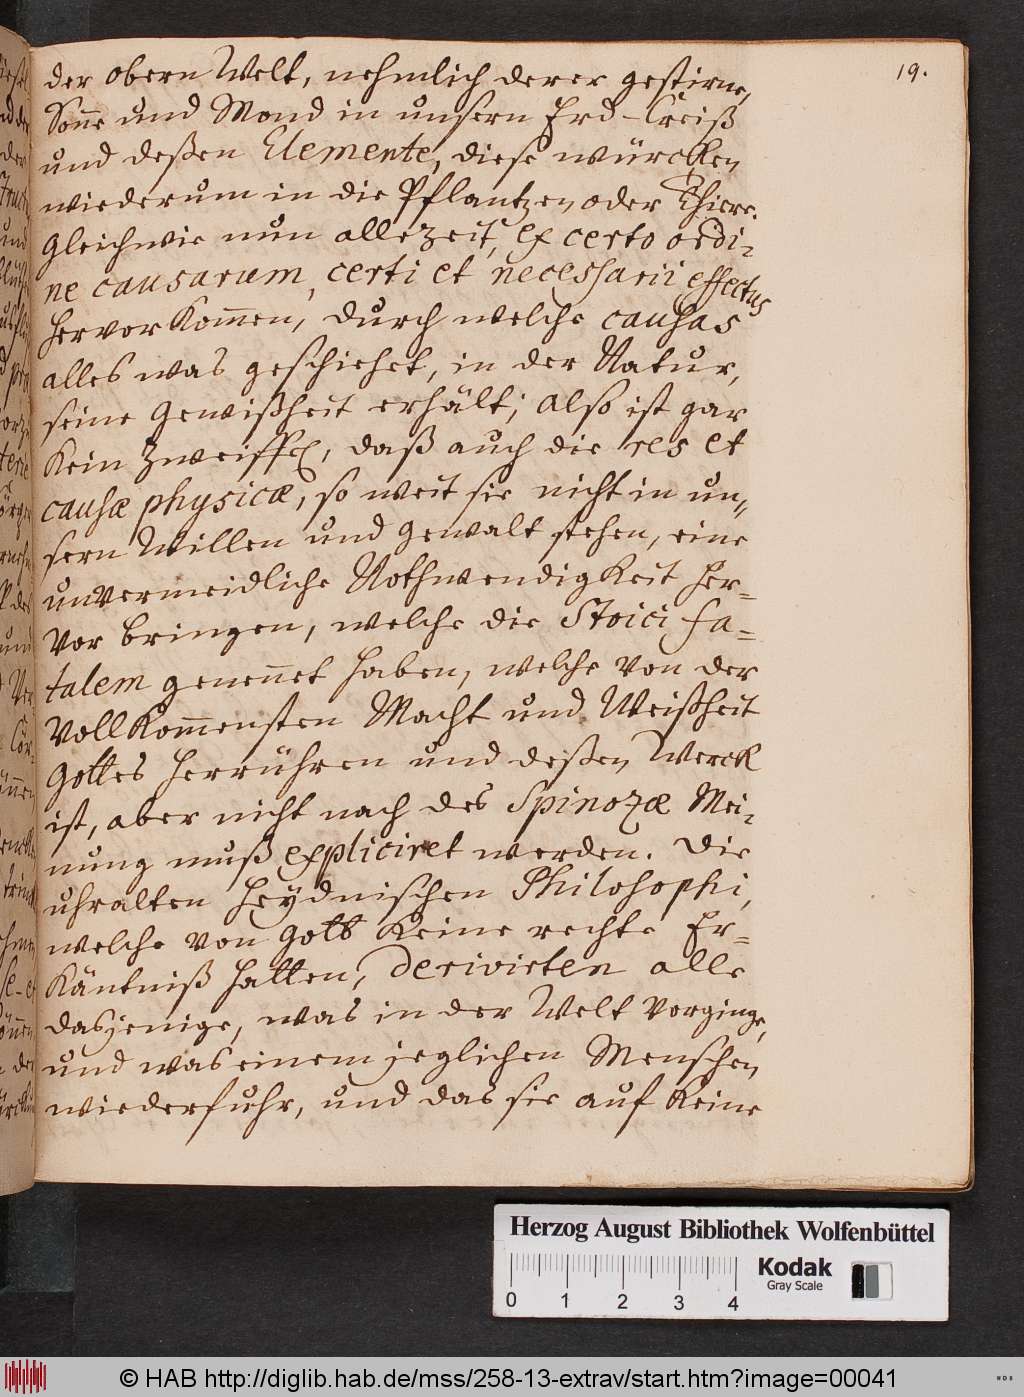 19.
der obern Welt, nehmlich derer gestirne,
Sonne und Mond in unsern Erd-Creiß
und deßen Elemente, diese würcken
wiederum in die Pflantzen oder Thiere.
Gleichwie nun allezeit, ex certo ordi-
ne causarum, certi et necessarii effectus
hervor kommen, durch welche causas
alles was geschiehet, in der Natur,
seine Gewißheit erhält; also ist gar
kein Zweiffel, daß auch die res et
causæ physicæ, so weit sie nicht in un-
sern Willen und Gewalt stehen, eine
unvermeidliche Nothwendigkeit her-
vor bringen, welche die Stoici fa-
talem genennet haben, welche von der
vollkommensten Macht und Weißheit
Gottes herrühren und deßen Werck
ist, aber nicht nach des Spinozæ Mei-
nung muß expliciret werden. Die
uhralten Heydnischen Philosophi,
welche von Gott keine rechte Er-
käntniß hatten, derivirten alle
dasjenige, was in der Welt vorginge,
und was einem jeglichen Menschen
wiederfuhr, und das sie auf keine
Herzog August Bibliothek Wolfenbüttel
Kodak
Gray Scale
0 1 2 3 4
© HAB http://diglib.hab.de/mss/258-13-extrav/start.htm?image=00041